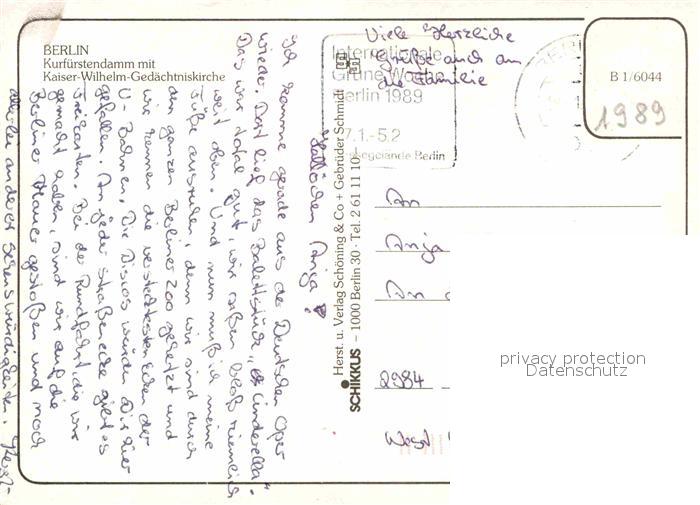 BERLIN
Kurfürstendamm mit
Kaiser-Wilhelm-Gedächtniskirche
Hallöchen Anja!
Ich komme gerade aus der Deutschen Oper
wieder. Dort lief das Ballettstück "Cinderella".
Das war total gut, wir saßen bloß ziemlich
weit oben. Und nun muß ich meine
Füße ausruhen, denn wir sind durch
den ganzen Berliner Zoo gehetzt und
wir kennen die verstecktesten Ecken der
U-Bahnen. Die Discos würden Dir hier
gefallen. An jeder Straßenecke gibt es
Freikarten. Bei der Rundfahrt, die wir
gemacht haben, sind wir auf die
Berliner Mauer gestoßen und noch
allerlei anderer Sehenswürdigkeiten.
Herst. u. Verlag Schöning & Co + Gebrüder Schmidt
SCHIKKUS – 1000 Berlin 30 · Tel. 2 61 11 10
Viele Herzliche
Grüße auch an
die Familie
Internationale
Grüne Woche
Berlin 1989
27.1.-5.2
Messegelände Berlin
B 1/6044
1989
An
Anja
An
2984
West
privacy protection
Datenschutz